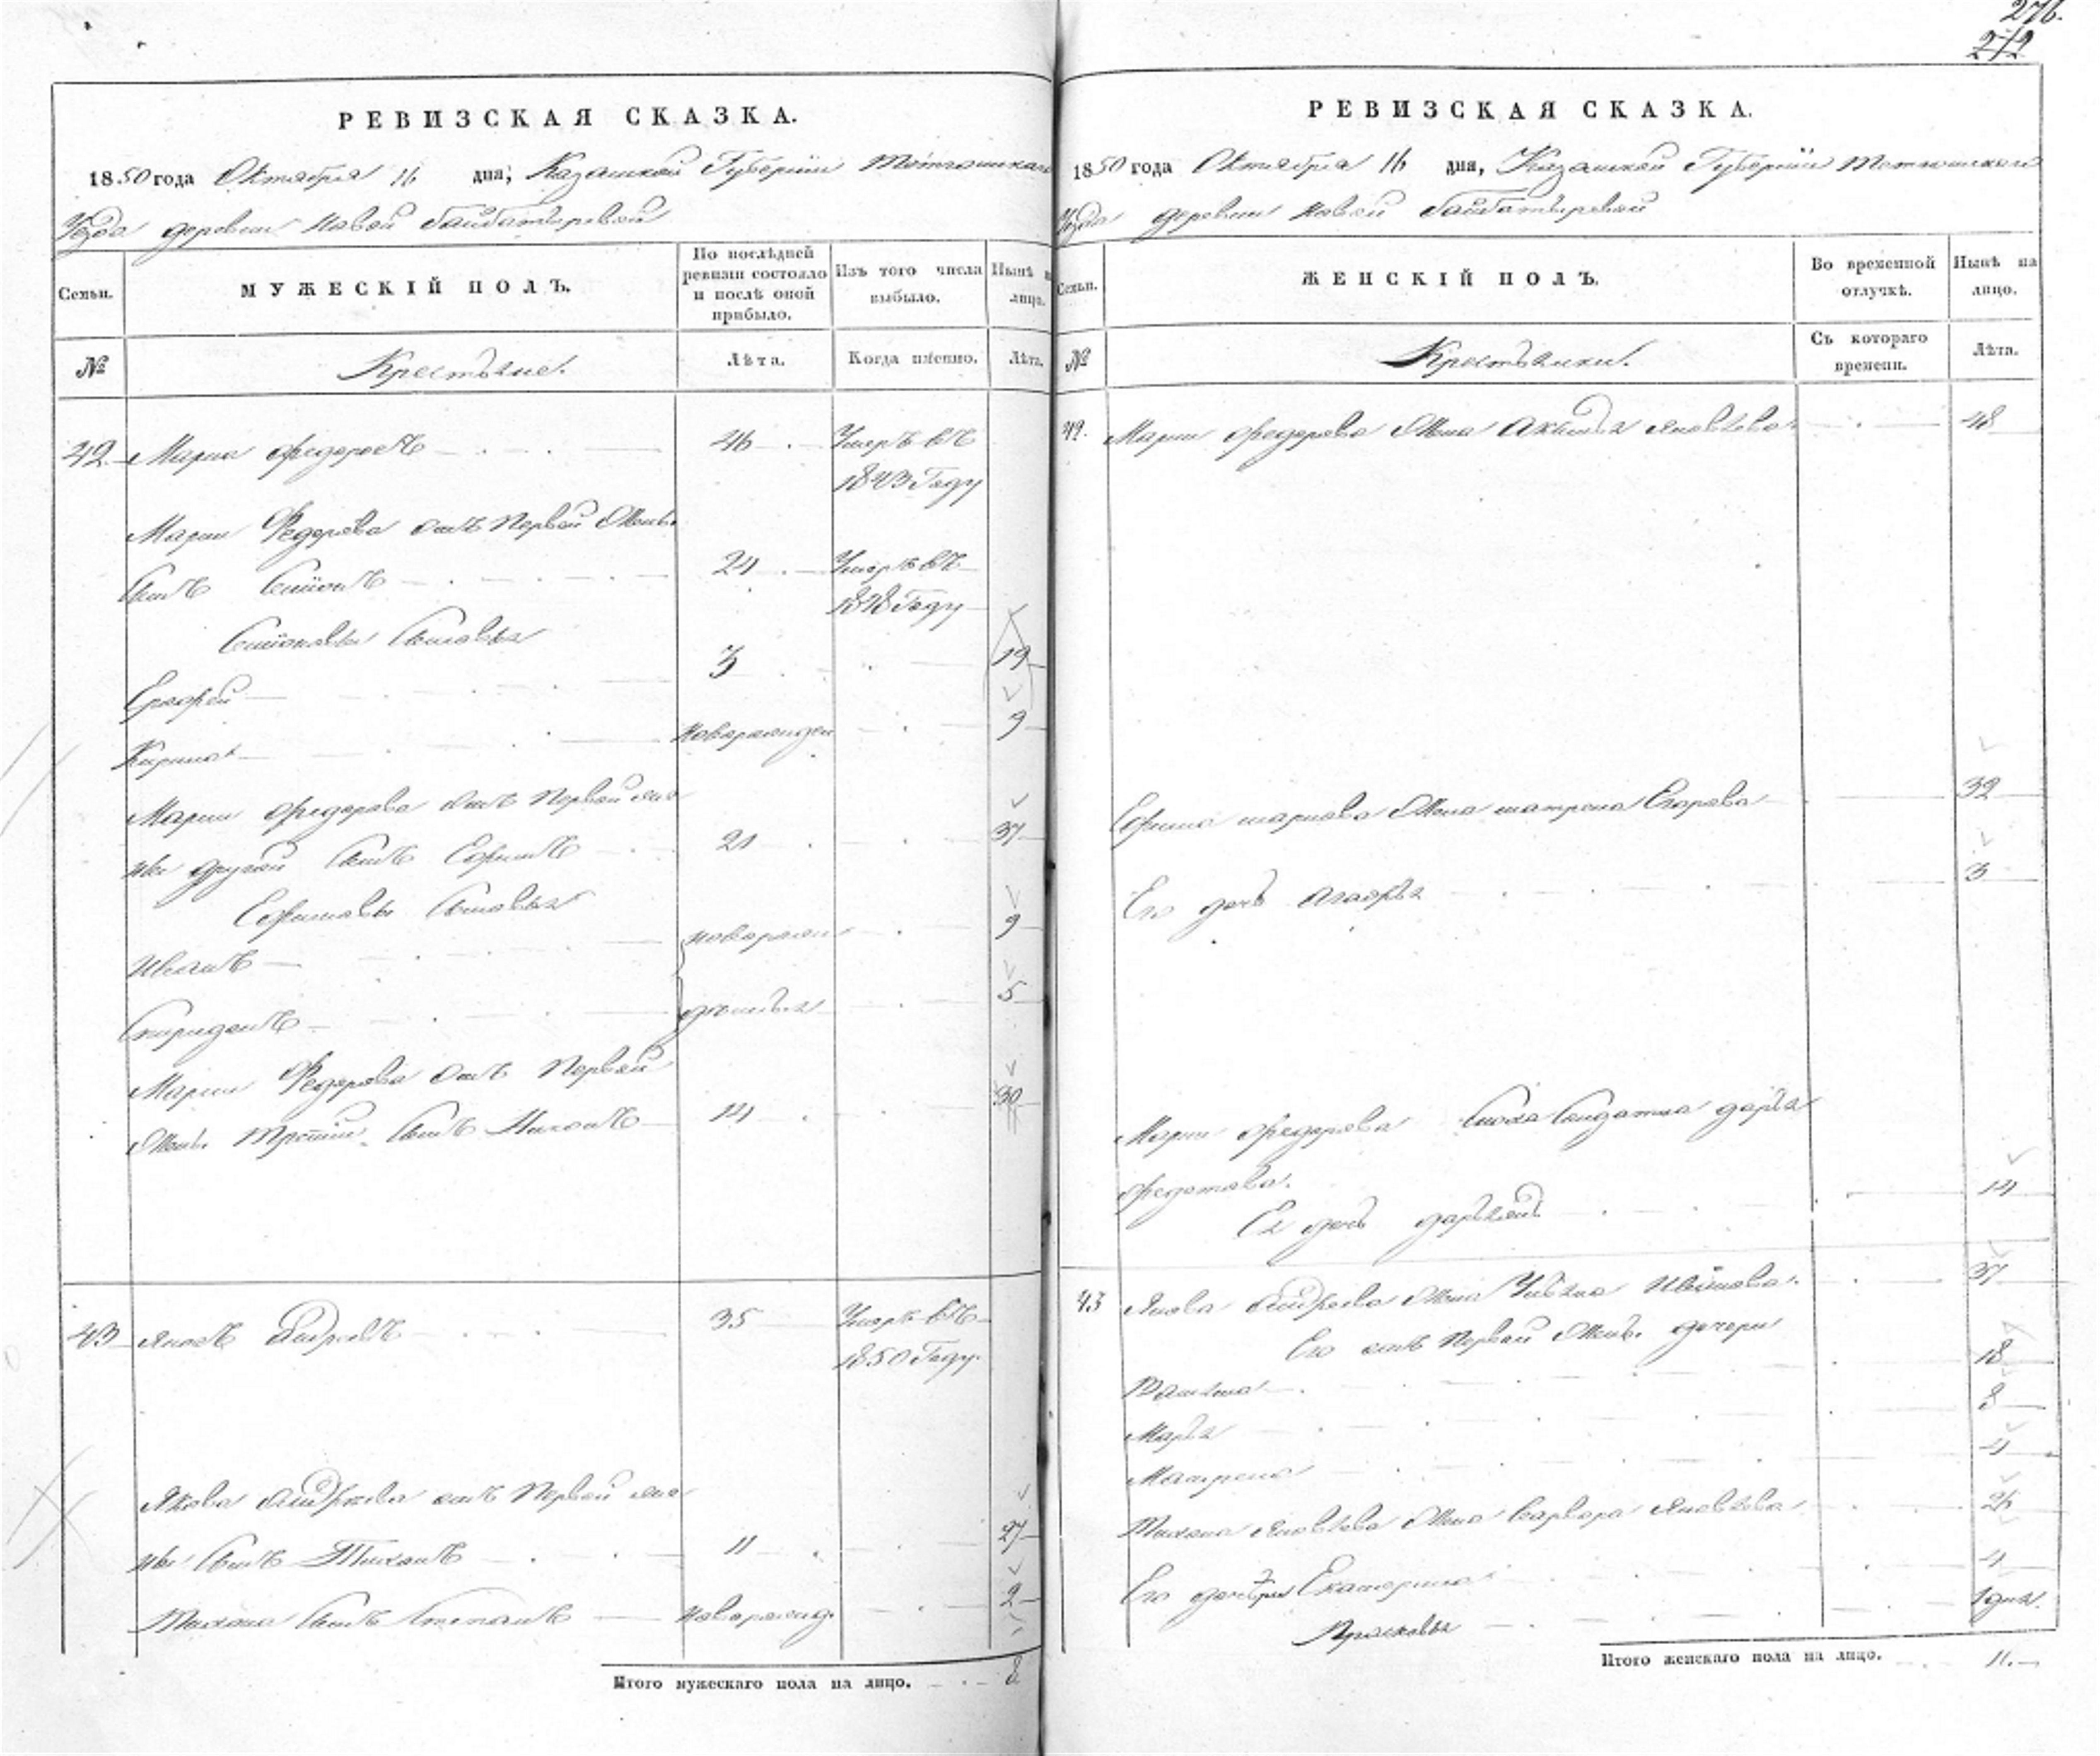 276.
272
РЕВИЗСКАЯ СКАЗКА.
1850 года Октября 16 дня, Казанской Губернiи
Уезда деревни Новой Байбатыревой
Семьи.
МУЖЕСКІЙ ПОЛЪ.
По послѣдней ревизіи состояло и послѣ оной прибыло.
Изъ того числа выбыло.
Нынѣ на лицо.
№
Крестьяне.
Лѣта.
Когда именно.
Лѣта.
42 Марка Федоровъ 46 Умеръ въ
1843 Году
Марки Федорова отъ Первой Жены
Сынъ Семіонъ 24 Умеръ въ
1848 Году
Семіоновы Сыновья
Ерофей 3 19
Кирила новорожден 9
Марки Федорова отъ Первой же
ны другой Сынъ Ефимъ 21 37
Ефимовы Сыновья
Иванъ новорож 9
Спиридонъ денныя 5
Марки Федорова отъ Первой
Жены Третiй Сынъ 14 30
43 Яковъ Андреевъ 35 Умеръ въ
1850 Году.
Якова Андреева отъ Первой же
ны Сынъ Тихонъ 11 27
Тихона Сынъ Степанъ новорожд. 2
Итого мужескаго пола на лицо. 8
РЕВИЗСКАЯ СКАЗКА.
1850 года Октября 16 дня, Казанской Губернiи
Уезда деревни Новой Байбатыревой
Семьи.
ЖЕНСКІЙ ПОЛЪ.
Во временной отлучкѣ.
Нынѣ на лицо.
№
Крестьянки.
Съ котораго времени.
Лѣта.
42. Марки Федорова Жена Яковлева 48
Ефима Маркова Жена Матрена Егорова 32
Его дочь 3
Марки Федорова Сноха Солдатка Дарья
Федотова.
Ея дочь 14
43 Якова Андреева Жена Иванова. 37
Его отъ Первой Жены дочери
18
Марья 8
Матрена 4
Тихона Яковлева Жена Варвара Яковлева 26
Его дочери Екатерина 4
Прасковья 1 дня.
Итого женскаго пола на лицо. 11.